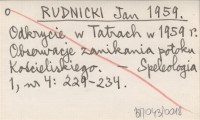 RUDNICKI Jan 1959.
Odkrycie w Tatrach w 1959 r.
Obserwacje zanikania potoku
Kościeliskiego. — Speleologia
1, nr 4: 229-234.